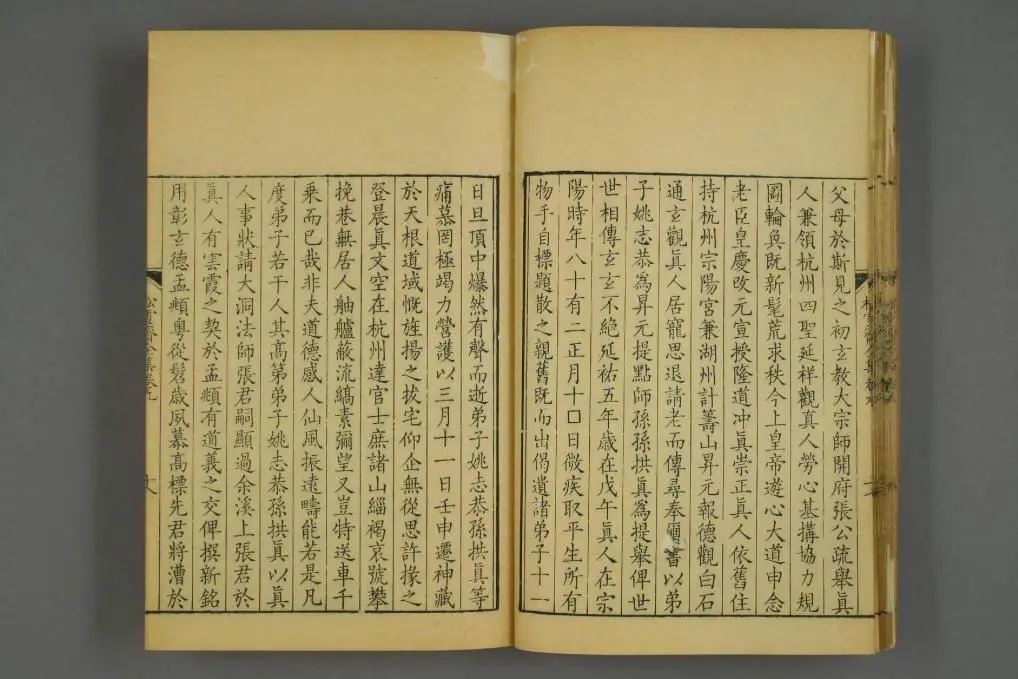 父母於斯見之初玄教大宗師開府張公疏舉真
人兼領杭州四聖延祥觀真人勞心基搆協力規
圖輪奐既新髦荒求秩今上皇帝遊心大道申念
老臣皇慶改元宣授隆道冲真崇正真人依舊住
持杭州宗陽宮兼湖州計籌山昇元報德觀白石
通玄觀真人居寵思退請老而傳尋奉璽書以弟
子姚志恭為昇元提點師孫孫拱真為提舉俾世
世相傳玄玄不絕延祐五年歲在戊午真人在宗
陽時年八十有二正月十口日微疾取平生所有
物手自標題散之親舊既而出偈遺諸弟子十一
日旦頂中爆然有聲而逝弟子姚志恭孫拱真等
痛慕罔極竭力營護以三月十一日壬申遷神藏
於天根道域慨旌揚之拔宅仰企無從思許掾之
登晨真文空在杭州達官士庶諸山緇褐哀號攀
挽巷無居人舳艫蔽流縞素彌望又豈特送車千
乘而已哉非夫道德感人仙風振遠疇能若是凡
度弟子若干人其高第弟子姚志恭孫拱真以真
人事狀請大洞法師張君嗣顯過余溪上張君於
真人有雲霞之契於孟頫有道義之交俾撰新銘
用彰玄德孟頫粵從髫歲夙慕高標先君將漕於
松雪齋文集卷九
十八